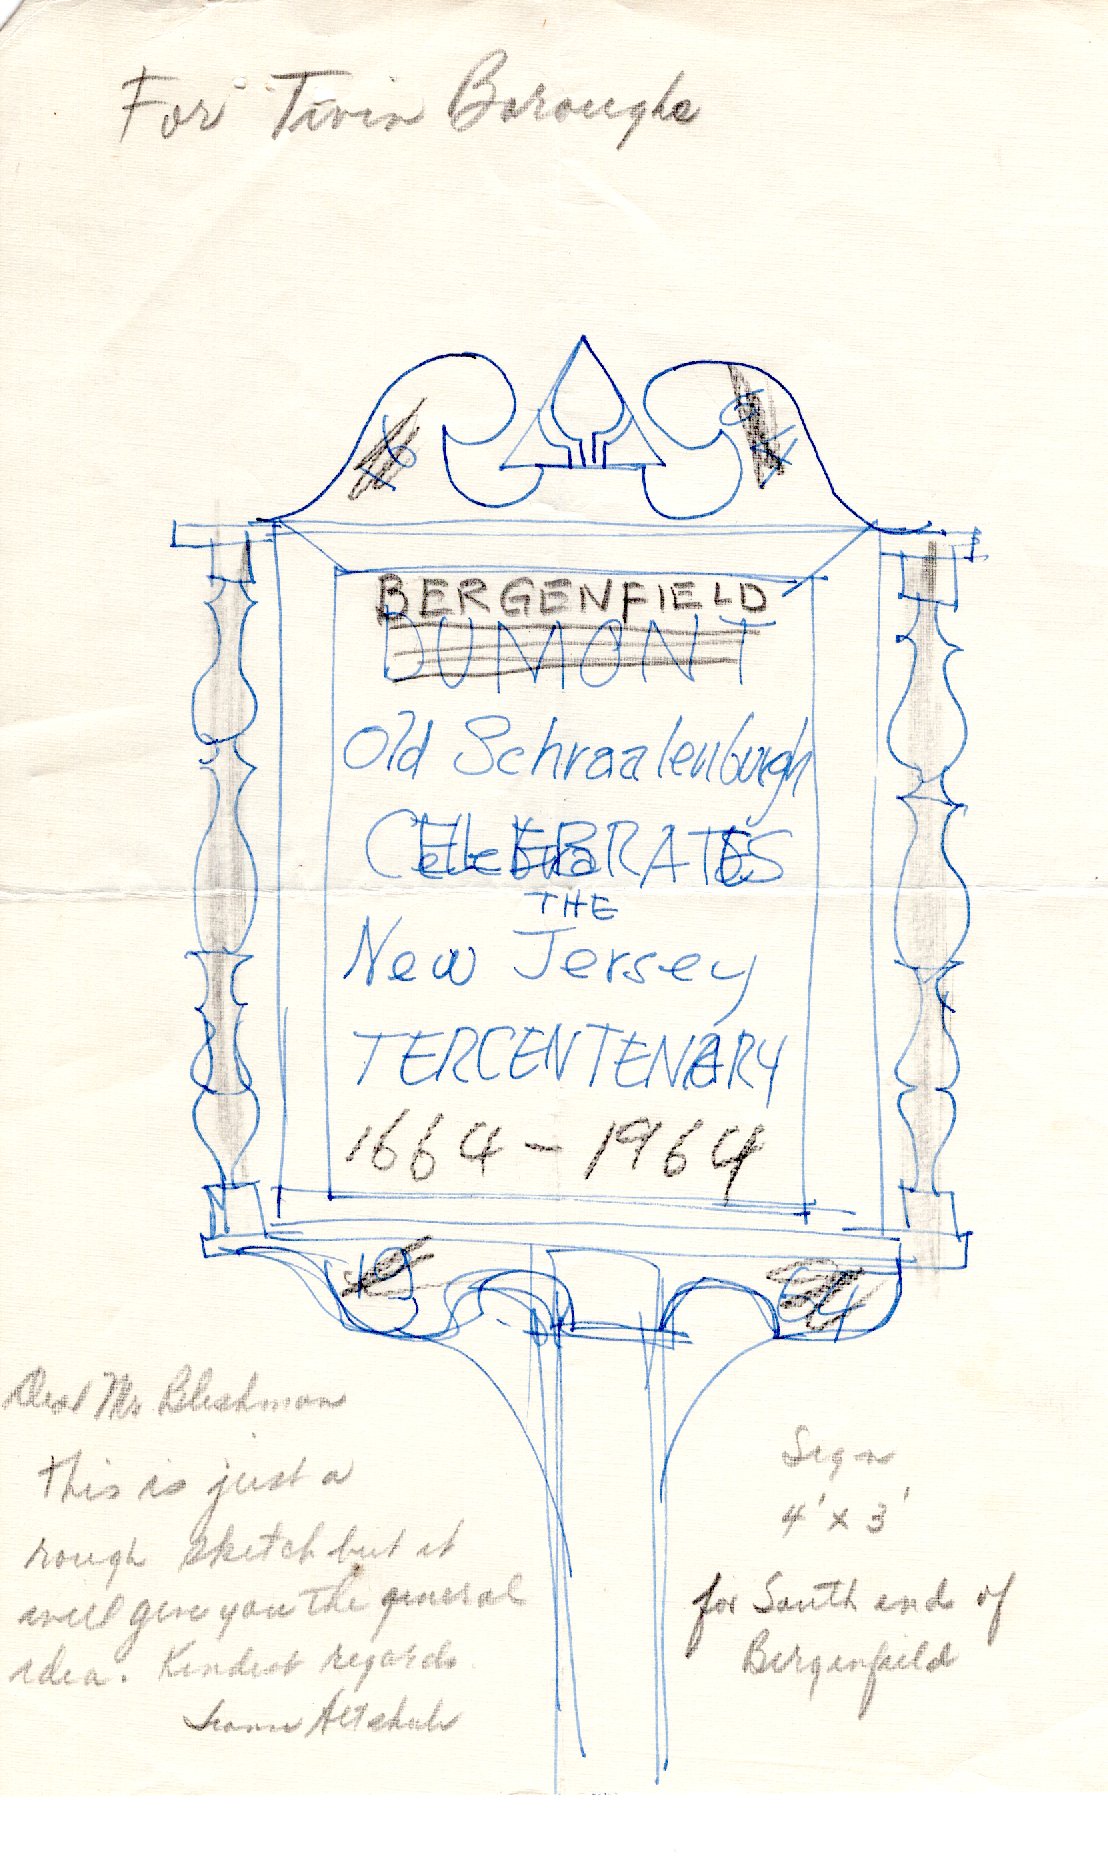 For Twin Boroughs
BERGENFIELD
DUMONT
Old Schraalenburgh
CELEBRATES
THE
New Jersey
TERCENTENARY
1664 - 1964
Dear Mr Bleshman
This is just a
rough sketch but it
will give you the general
idea. Kindest regards
Altschul
Sign
4' x 3'
for South end of
Bergenfield